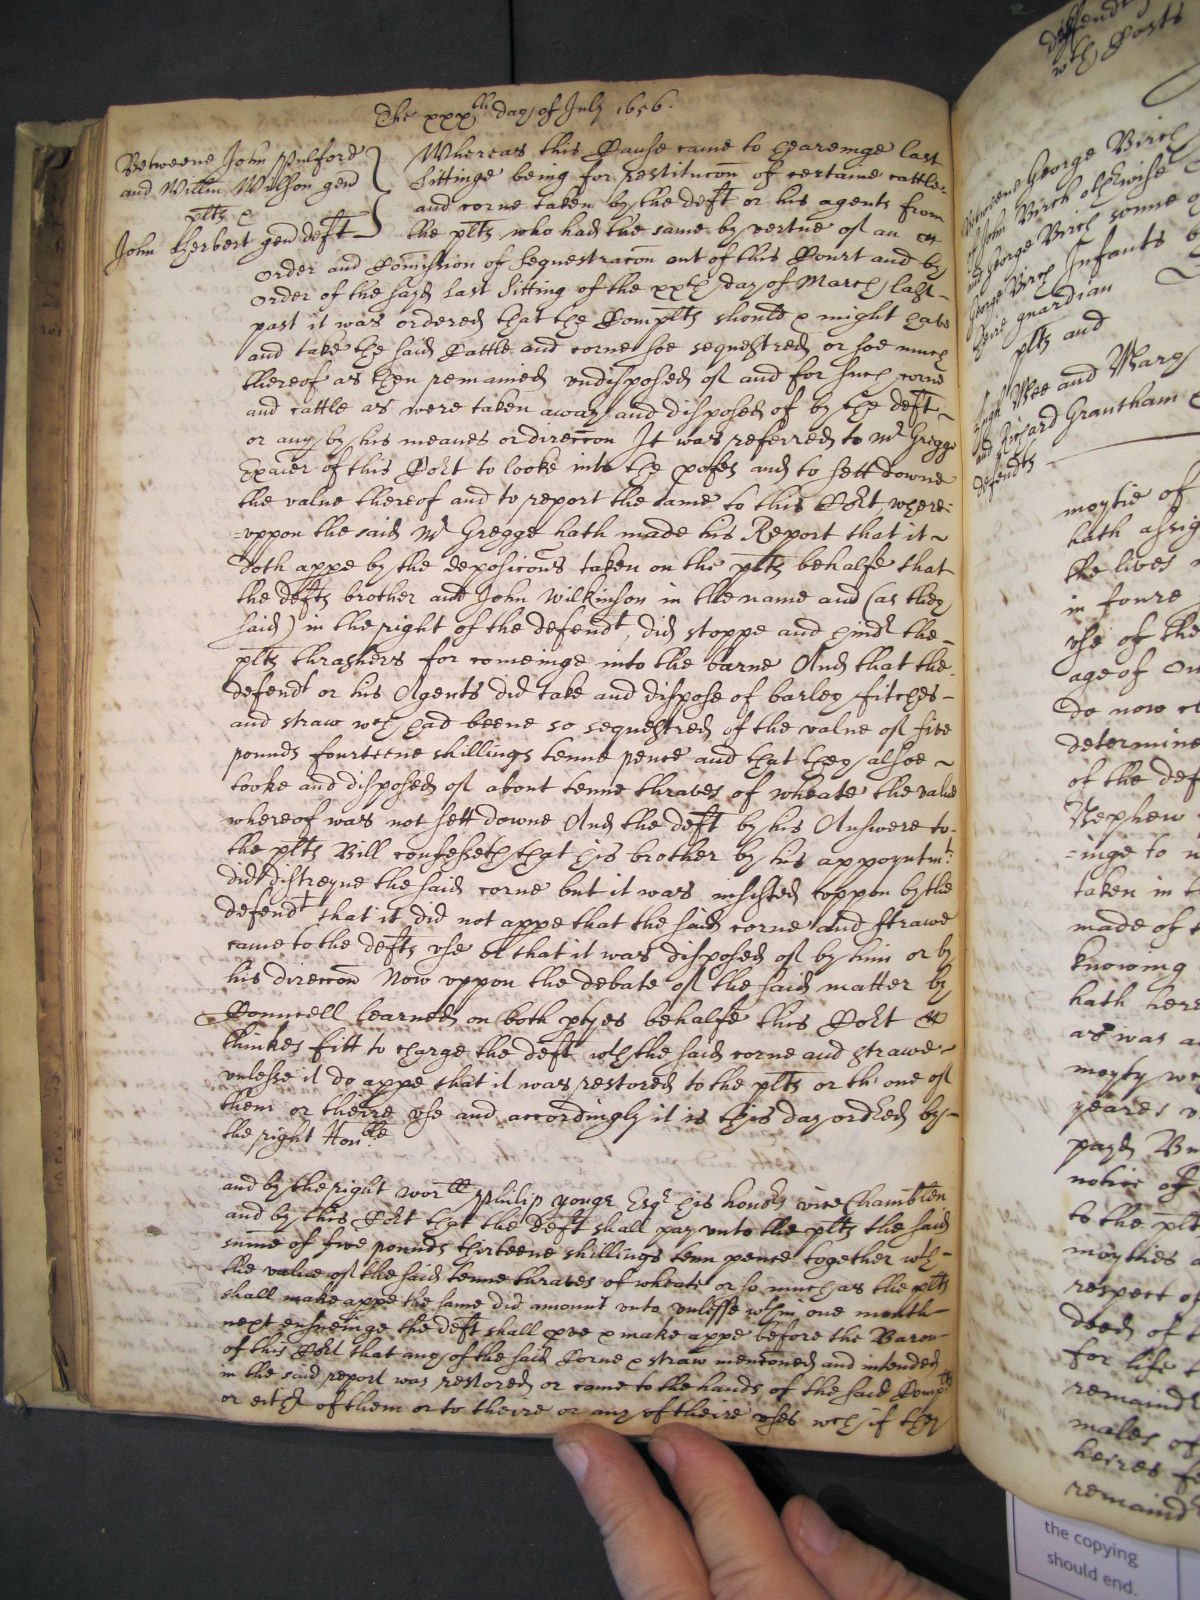 The xxxth day of July 1656.
Betweene John Pulford
and Willm Wilson gen
plts &
John Herbert gen deft
Whereas this Cause came to heareinge last
Sittinge being for restitucon of certaine cattle
and corne taken by the deft or his agents from
the plts who had the same by vertue of an
order and Comission of sequestracon out of this Court and by
order of the sayd last Sitting of the xxth day of March last
past it was ordered that the Complts should & might have
and take the said Cattle and corne soe sequestred or soe much
thereof as then remained undisposed of and for such corne
and cattle as were taken away and disposed of by the deft
or any by his meanes or direccon It was referred to Mr Gregge
Exaier of this Cort to looke into the and to sett downe
the value thereof and to report the same to this Cort, where=
=uppon the said Mr Gregge hath made his Report that it
doth appe by the deposicons taken on the plts behalfe that
the defts brother and John Wilkinson in the name and (as they
said) in the right of the defendt, did stoppe and hindr the
plts thrashers for comeinge into the barne And that the
defendt or his Agents did take and dispose of barley fitches
and straw wch had beene so sequestred of the value of five
pounds fourteene shillings tenne pence and that they alsoe
tooke and disposed of about tenne thraves of wheate the value
whereof was not sett downe And the deft by his Answere to
the plts Bill confesseth that his brother by his appoyntmt
did distreyne the said corne but it was insisted uppon by the
defendt that it did not appe that the said corne and strawe
came to the defts use or that it was disposed of by him or by
his direccon Now uppon the debate of the said matter by
Councell learned on both ptyes behalfe this Cort
thinkes fitt to charge the deft wth the said corne and strawe
unlesse it do appe that it was restored to the plts or th' one of
them or theire use and accordingly it is this day ordred by
the right Honble
and by the right worll Philip Yonge Esqr his honors vice Chambrlen
and by this Cort that the deft shall pay unto the plts the said
sume of five pounds thirteene shillings tenn pence together wth
the value of the said tenne thraves of wheate or so much as the plts
shall make appe the same did amount unto unlesse wthin one month
next ensueinge the deft shall & make appe before the Baron
of this Cort that any of the said Corne & straw mencioned and intended
in the said report was restored or came to the hands of the said Complts
or eithr of them or to theire or any of theire uses wch if they
defendt
wth Costs
Betweene George Birch
John Birch otherwise
and George Birch sonne
George Birch Infants
theire guardian
plts and
Hugh Wee and Mary
and Richard Grantham
defendts
moytie of
hath assig
the lives
in foure
use of the
age of
do now
determine
of the def
Nephew
=inge to
taken in
made of
knowing
hath here
as was
moyty
yeares
payd
notice of
to the plt
moyties
respect of
deed of
for life
remaindr
males of
heires
remaind
the copying
should end.